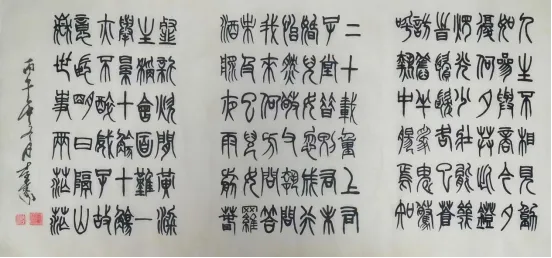 人生不相見動
如參與商今夕
復何夕共此鐙
燭光少壯能幾
時鬢髮各已蒼
訪舊半為鬼驚
呼熱中腸焉知
二十載重上君
子堂昔別君未
婚兒女忽成行
怡然敬父執問
我來何方問答
未及已兒女羅
酒漿夜雨剪春
韭新炊間黃粱
主稱會面難一
舉累十觴十觴
亦不醉感子故
意長明日隔山
嶽世事兩茫茫
丙午年